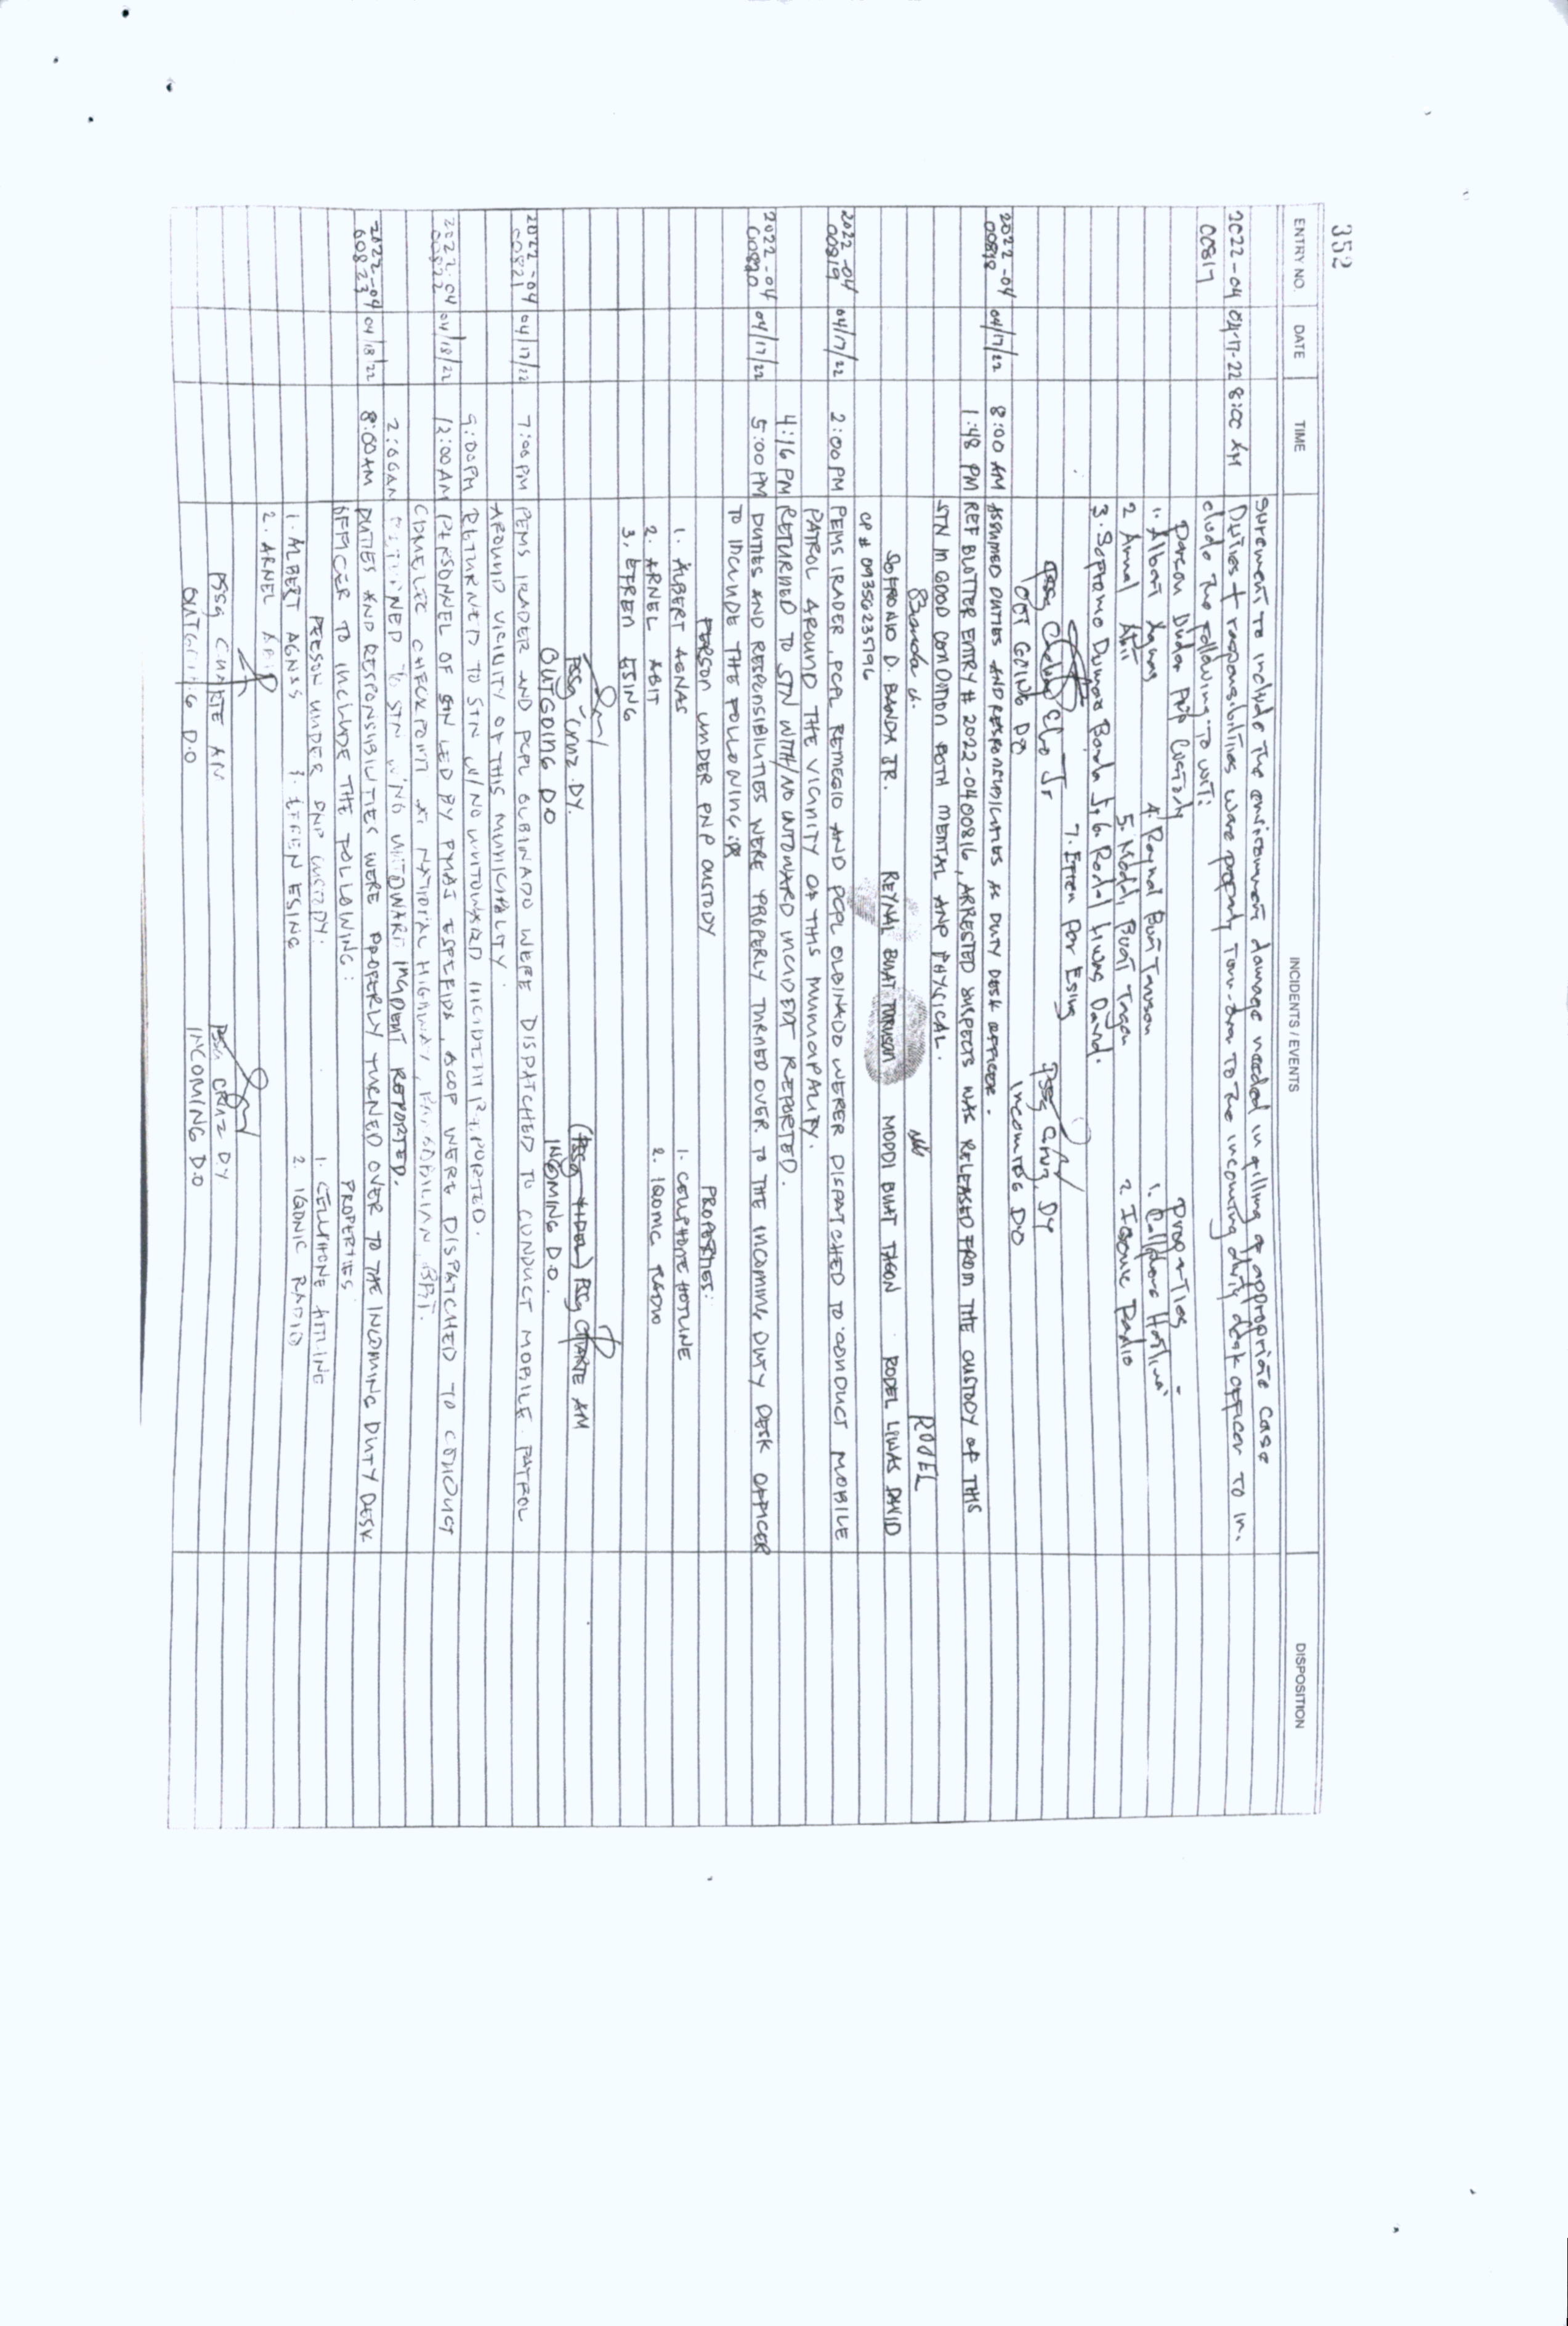 352
ENTRY NO. DATE TIME INCIDENTS / EVENTS DISPOSITION
surement to include the environment damage needed in filling of appropriate case
2022-04 04-17-22 8:00 AM Duties & responsibilities were properly turn-over to the incoming duty desk officer to in-
00817 clude the following to wit:
Person Under PNP Custody Properties -
1. Albert Agnas 4. Reynal Buat Turuson 1. Cellphone Hotline
2 Arnel Abit 5. Moddi Buat Tagon 2 Iconic Radio
3. Sofronio Dumao Banda Jr 6. Rodel Liwas David.
7. Efren Par Esing
PSSg Jr PSSg Cruz, DY
OUT GOING DO INCOMING DO
2022-04 04/17/22 8:00 AM ASSUMED DUTIES AND RESPONSIBILITIES AS DUTY DESK OFFICER.
00818 1:48 PM REF BLOTTER ENTRY # 2022-0400816, ARRESTED SUSPECTS WAS RELEASED FROM THE CUSTODY OF THIS
STN IN GOOD CONDITION BOTH MENTAL AND PHYSICAL.
RODEL
SOFRONIO D. BANDA JR. REYNAL BUAT TURUSON MODDI BUAT TAGON RODEL LIWAS DAVID
CP # 09356235796
2022-04 04/17/22 2:00 PM PEMS IRADER, PCPL REMEGIO AND PCPL OLBINADO WERER DISPATCHED TO CONDUCT MOBILE
00819 PATROL AROUND THE VICINITY OF THIS MUNICIPALITY.
4:16 PM RETURNED TO STN WITH/NO UNTOWARD INCIDENT REPORTED.
2022-04 04/17/22 5:00 PM DUTIES AND RESPONSIBILITIES WERE PROPERLY TURNED OVER TO THE INCOMING DUTY DESK OFFICER
00820 TO INCLUDE THE FOLLOWING:
PERSON UNDER PNP CUSTODY PROPERTIES:
1. ALBERT AGNAS 1. CELLPHONE HOTLINE
2. ARNEL ABIT 2. RADIO
3. EFREN ESING
PSSg CRUZ DY. PSSg AM
OUTGOING DO INCOMING D.O.
2022-04 04/17/22 7:00 PM PEMS IRADER AND PCPL OLBINADO WERE DISPATCHED TO CONDUCT MOBILE PATROL
00821 AROUND VICINITY OF THIS MUNICIPALITY.
9:00PM RETURNED TO STN W/NO UNTOWARD INCIDENT REPORTED.
2022-04 04/18/22 12:00AM PERSONNEL OF STN LED BY PMAJ ESPEFIDA, ACOP WERE DISPATCHED TO CONDUCT
00822 COMELEC CHECKPOINT AT NATIONAL HIGHWAY,
2:00AM RETURNED TO STN W/NO UNTOWARD INCIDENT REPORTED.
2022-04 04/18/22 8:00AM DUTIES AND RESPONSIBILITIES WERE PROPERLY TURNED OVER TO THE INCOMING DUTY DESK
00823 OFFICER TO INCLUDE THE FOLLOWING:
PERSON UNDER PNP CUSTODY: PROPERTIES
1. ALBERT AGNAS 3. EFREN ESING 1. CELLPHONE HOTLINE
2. ARNEL ABIT 2. ICONIC RADIO
PSSg PSSg CRUZ DY
OUTGOING D.O INCOMING D.O